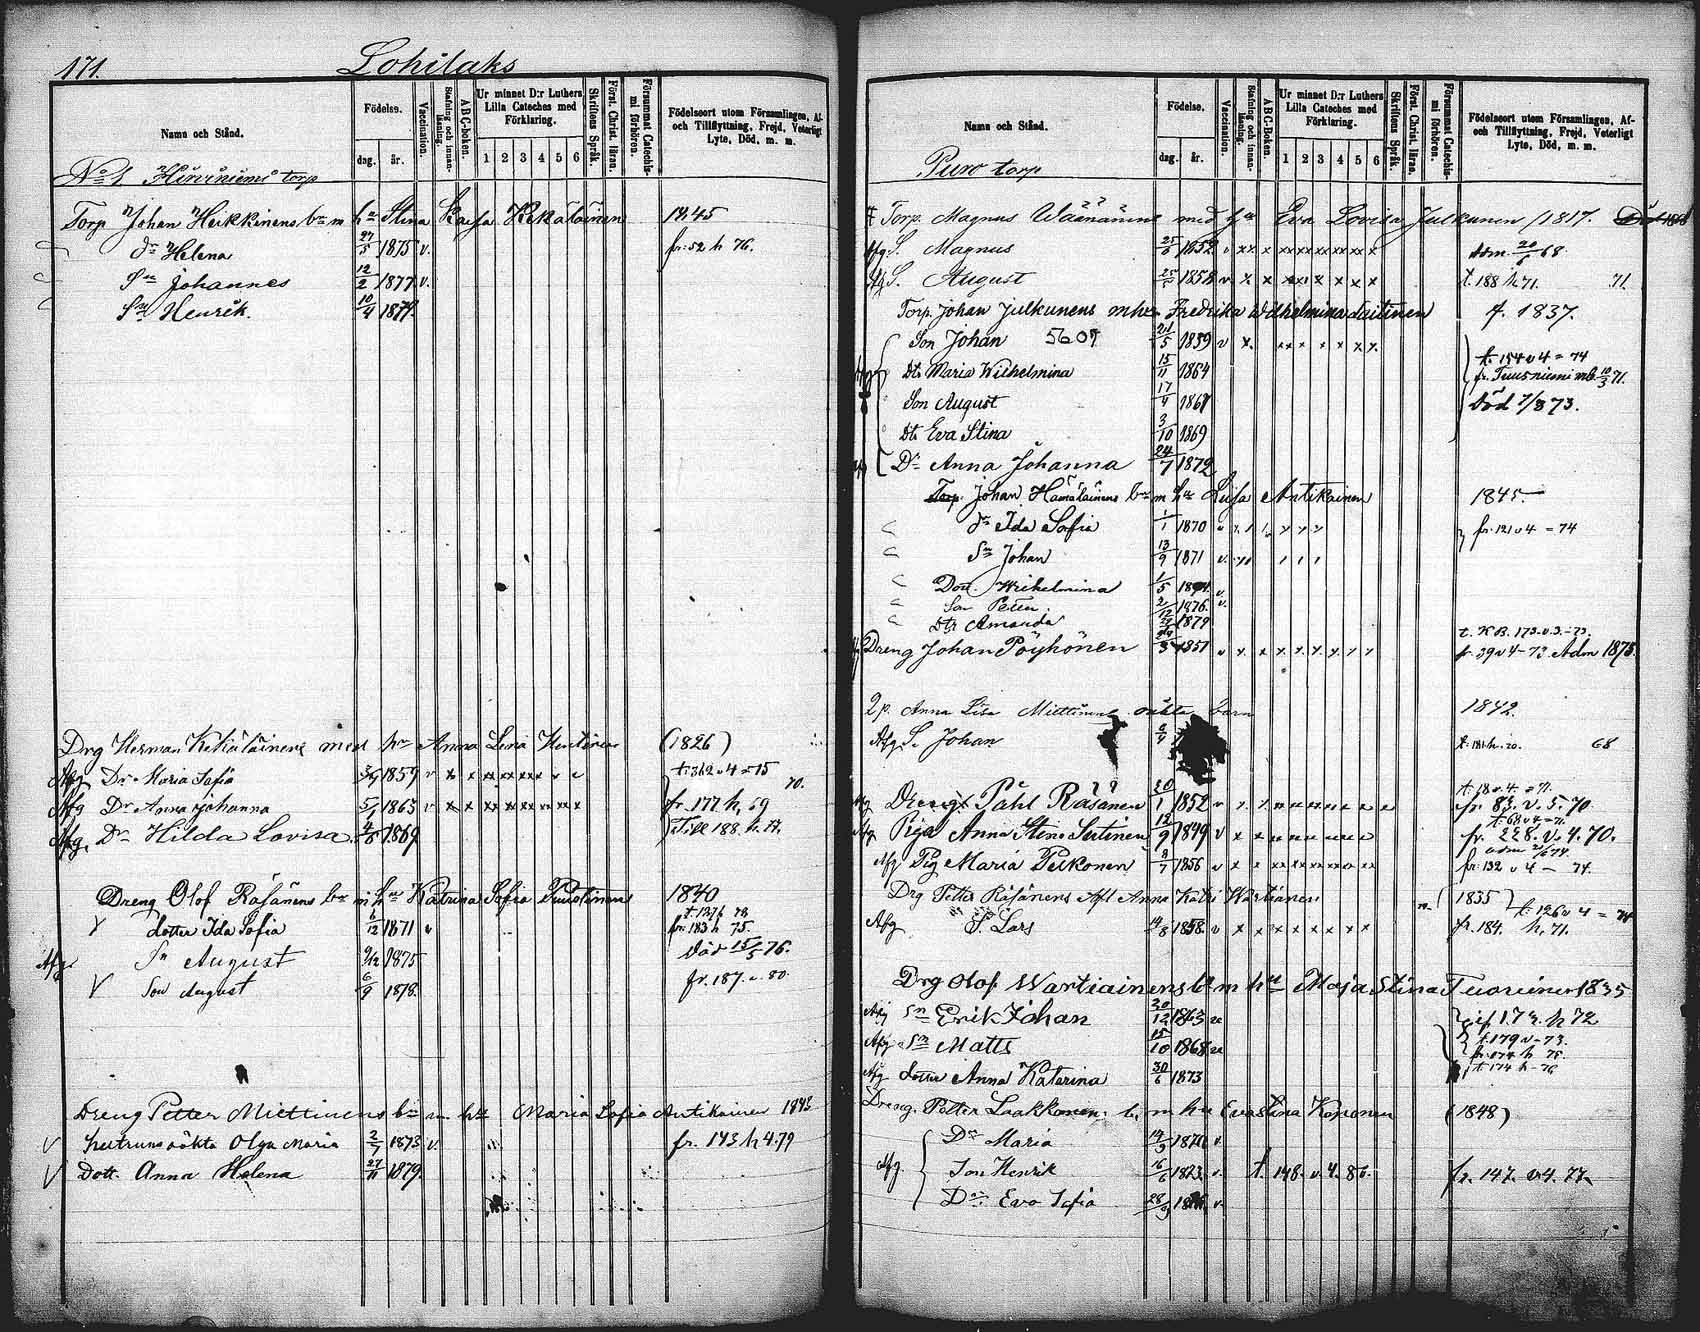 171.
Lohilaks
Namn och Stånd.
Födelse.
dag. år.
Vaccination.
Stafning och innanläsning.
ABC-boken.
Ur minnet D:r Luthers Lilla Cateches med Förklaring.
1 2 3 4 5 6
Skriftens Språk.
Först. Christ. läran.
Försummat Catechismi förhören.
Födelseort utom Församlingen, Af- och Tillflyttning, Frejd, Veterligt Lyte, Död, m. m.
No 1 torp
Torp Johan Heikkinens bn m hu Stina Kaisa Kekäläinen 1845
dr Helena 27/5 1875 v. fr. 52 h 76.
Sn Johannes 12/2 1877 v.
Sn Henrik. 10/4 1879.
Drg Herman Kekäläinens med hu Anna Lena (1826)
Afg Dr Maria Sofia 1859 v x x xxxxx
Afg Dr Anna Johanna 1863 v x x xxxxxxxx fr. 177 h, 69 70.
Afg. Dr Hilda Lovisa 1869 Till 188. h.
Dreng Olof Räsänens bn m hu Katrina Sofia 1840
V dotter Ida Sofia 6/12 1871 v fr. 183 h 75.
Afg. Sn August 9/12 1875 död 15/5 76.
V Son August 6/9 1878. fr. 187. v. 80.
Dreng Petter Miettinens bn m hu Maria Sofia Antikainen 1843
V Hustruns oäkta Olga Maria 2/7 1873 v. fr. 143 h 4. 79
V Dott. Anna Helena 27/11 1879.
Namn och Stånd.
Födelse.
dag. år.
Vaccination.
Stafning och innanläsning.
ABC-boken.
Ur minnet D:r Luthers Lilla Cateches med Förklaring.
1 2 3 4 5 6
Skriftens Språk.
Först. Christ. läran.
Försummat Catechismi förhören.
Födelseort utom Församlingen, Af- och Tillflyttning, Frejd, Veterligt Lyte, Död, m. m.
Puro torp
Torp. Magnus Väänänens med hu Eva Lovisa Julkunen /1817.
Afg S. Magnus 25/6 1852 v xx x xxxxxxxxx Adm. 20/6 68
Afg S. August 25/5 1858 v x x xxxxxxxx t. 188 h 71. 71.
Torp. Johan Julkunens m hu Fredrika Wilhelmina Laitinen f. 1837.
Son Johan 5609 1859 v x. xxxxxxx t. 154 v 4 = 74
Dtr Maria Wilhelmina 15/11 1864 fr. Tuusniemi mb 10/3 71.
Son August 17/4 1867 Död 7/8 73.
Dtr Eva Stina 3/10 1869
Dr Anna Johanna 24/7 1872
Torp. Johan Hämäläinens bn m hu Lisa Antikainen 1845
dr Ida Sofia 1/1 1870 fr. 121 v 4 = 74
Sn Johan 13/9 1871 v.
Dott. Wilhelmina 1/5 v.
Son Petter. 2/12 1876. v.
Dtr Amanda 1879
t. KB. 173. v. 3. - 73.
Dreng Johan Pöyhönen 1851 v x x x x x x x x fr. 39 v 4 - 73. Adm 1873.
2 p. Anna Lisa Miettinens oäkta barn 1842.
Afg S. Johan t. 181. h. 70. 68
Afg Dreng. Påhl Räsänen 20/1 1852 v x. x. fr. 83. v. 5. 70.
Afg Piga Anna Stina 12/9 1849 v x x fr. 228. v. 4. 70.
Afg Pig Maria Pelkonen 8/7 1856 v x x xxxxxxxx fr. 132 v 4 - 74.
Drg Petter Räsänens Afl Anna Kat: Wartiainen (1835) t. 126 v 4 = 74
Afg S. Lars 14/8 1858 v x x x x x x x x fr. 184. h. 71.
Drg Olof Wartiainens bn m hu Maja Stina 1835
Afg Sn Erik Johan 20/12 1863 17 h 72
Afg Sn Matts 15/10 1868 t. 179 v - 73.
fr. 174 h 75
Afg dotter Anna Katarina 30/6 1873 t. 174 h - 76
Dreng. Petter Laakkonen. b. m hu Eva Stina Koponen (1848)
Dr Maria 14/3 1870 v.
Afg. Son Henrik 16/6 1873 v. t. 148. v. 4. 80. fr. 147. v. 4. 77.
Dr Eva Sofia 28/9 v.